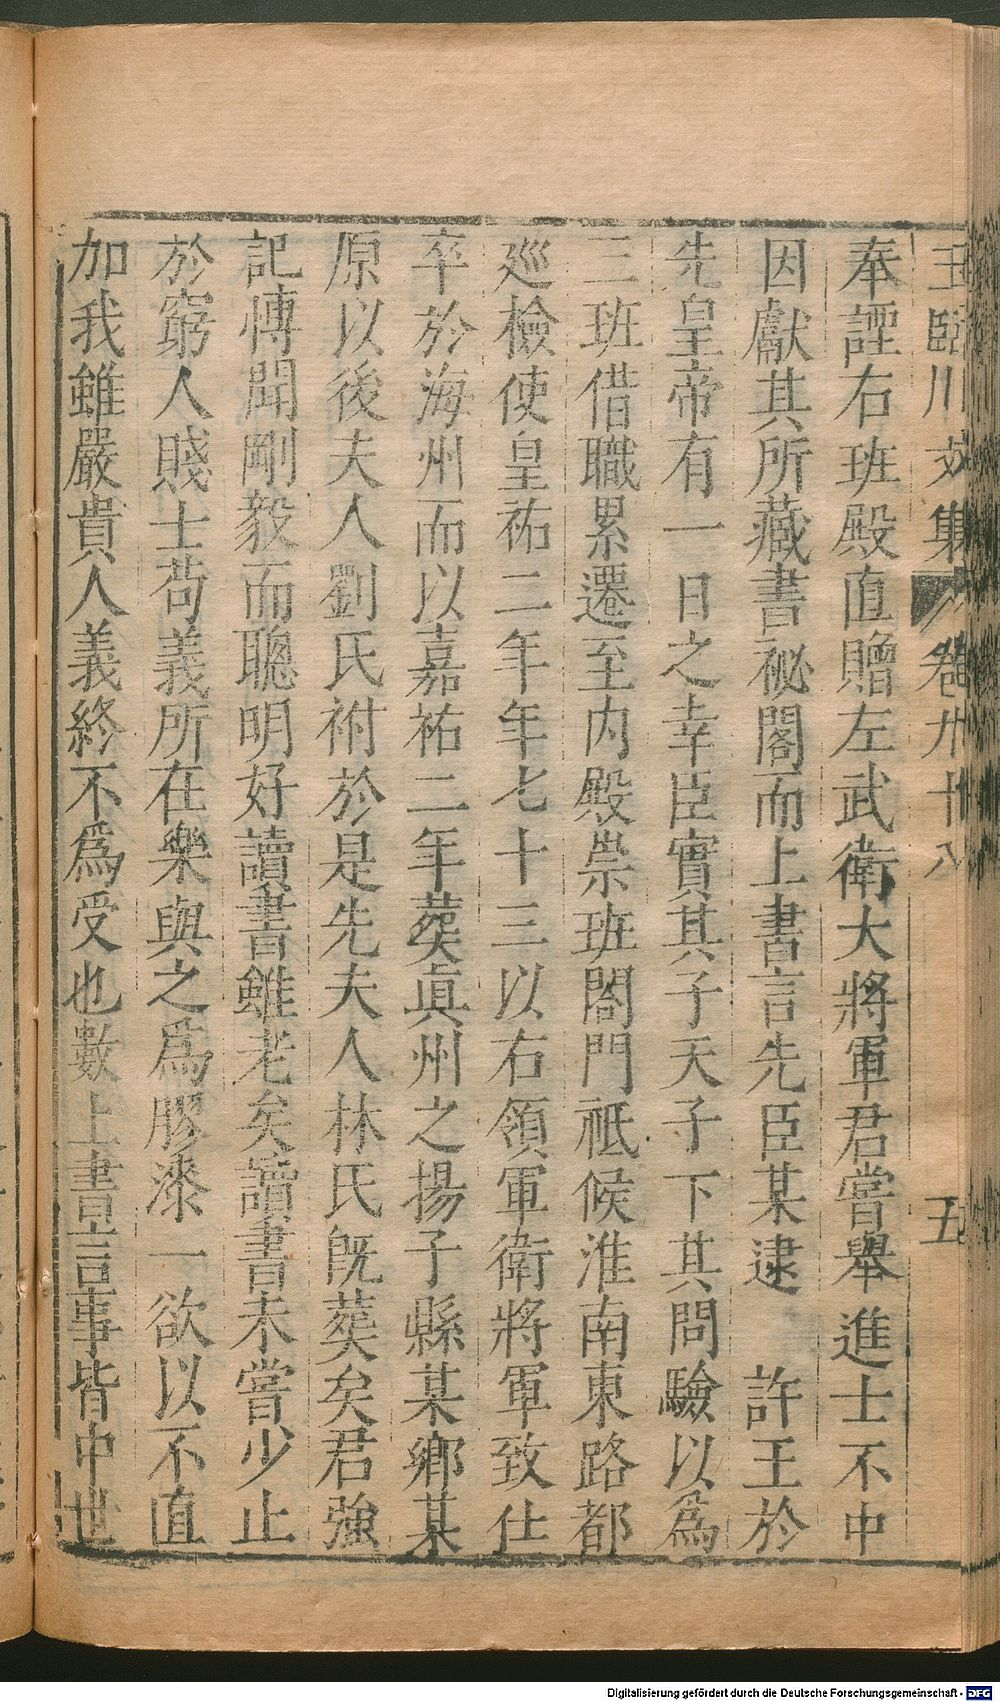 王臨川文集 卷九十八 五
奉諲右班殿直贈左武衛大將軍君嘗舉進士不中
因獻其所藏書祕閣而上書言先臣某逮 許王於
先皇帝有一日之幸臣實其子天子下其問驗以爲
三班借職累遷至内殿崇班閤門祗候淮南東路都
巡檢使皇祐二年年七十三以右領軍衛將軍致仕
卒於海州而以嘉祐二年葬眞州之揚子縣某鄉某
原以後夫人劉氏祔於是先夫人林氏旣葬矣君強
記博聞剛毅而聰明好讀書雖老矣讀書未嘗少止
於窮人賤士苟義所在樂與之爲膠漆一欲以不直
加我雖嚴貴人義終不爲受也數上書言事皆中世
Digitalisierung gefördert durch die Deutsche Forschungsgemeinschaft - DFG